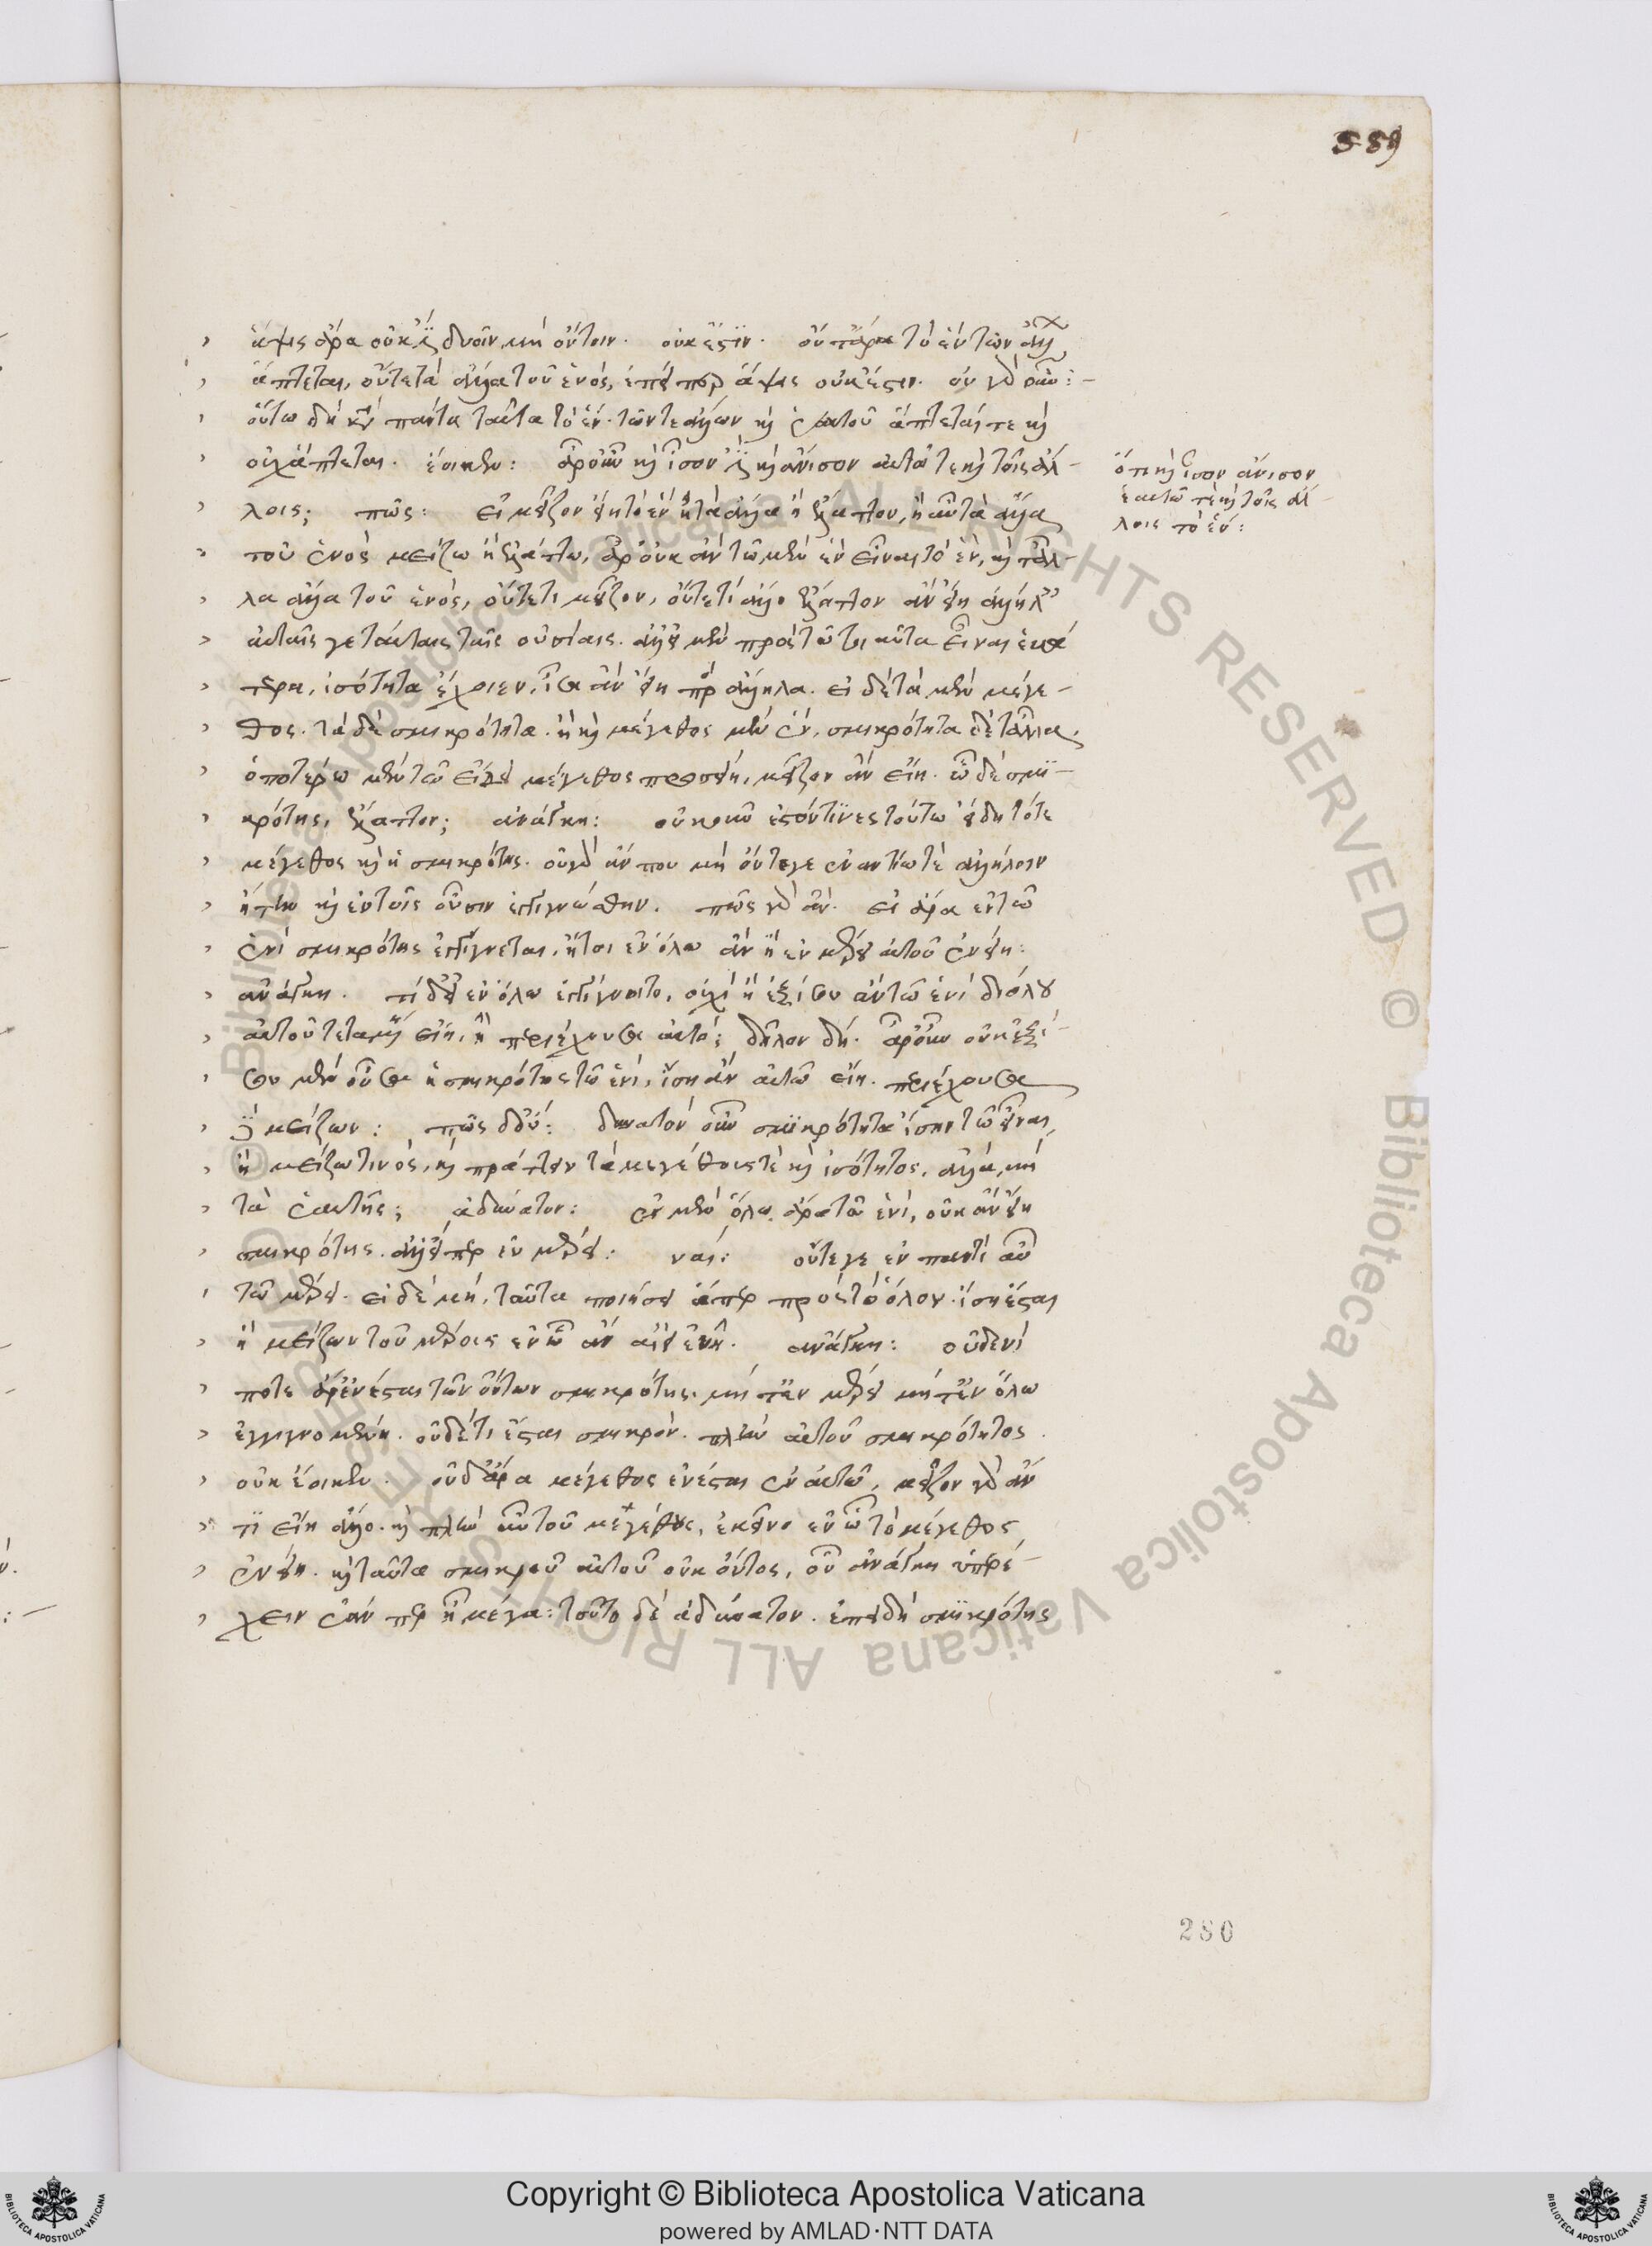 589
ἅψις ἄρα οὐκ ἔστι δυοῖν μὴ ὄντοιν. οὐκ ἔστιν. οὔτ' ἄρα τὸ ἓν τῶν ἄλλων
ἅπτεται, οὔτε τὰ ἄλλα τοῦ ἑνός, ἐπείπερ ἅψις οὐκ ἔστιν. οὐ γὰρ οὖν:
οὕτω δὴ κατὰ πάντα ταῦτα τὸ ἓν τῶν τε ἄλλων καὶ ἑαυτοῦ ἅπτεταί τε καὶ
οὐχ ἅπτεται. ἔοικεν: ἆρ' οὖν καὶ ἴσον ἐστὶ καὶ ἄνισον αὑτῷ τε καὶ τοῖς ἄλ-
λοις; πῶς: εἰ μεῖζον εἴη τὸ ἓν ἢ τὰ ἄλλα ἢ ἔλαττον, ἢ αὖ τὰ ἄλλα
τοῦ ἑνὸς μείζω ἢ ἐλάττω, ἆρ' οὐκ ἂν τῷ μὲν ἓν εἶναι τὸ ἓν, καὶ τἆλ-
λα ἄλλα τοῦ ἑνός, οὔτε τι μεῖζον, οὔτε τι ἄλλο ἔλαττον ἂν εἴη ἀλλήλων
αὐταῖς γε ταύταις ταῖς οὐσίαις. ἀλλ' εἰ μὲν πρὸς τῷ τοιαῦτα εἶναι ἑκά
τερα, ἰσότητα ἔχοιεν, ἴσα ἂν εἴη πρὸς ἄλληλα. εἰ δὲ τὰ μὲν μέγε-
θος. τὰ δὲ σμικρότητα. ἢ καὶ μέγεθος μὲν ἕν, σμικρότητα δὲ τἆλλα,
ὁποτέρω μὲν τῷ εἴδει μέγεθος προσείη, μεῖζον ἂν εἴη. ᾧ δὲ σμι-
κρότης, ἔλαττον; ἀνάγκη: οὐκοῦν ἐστόν τινες τούτω εἴδη τό τε
μέγεθος καὶ ἡ σμικρότης. οὐ γὰρ ἄν που μὴ ὄντε γε ἐναντίω τὲ ἀλλήλοιν
εἴτην καὶ ἐν τοῖς οὖσιν ἐγγιγνοίσθην. πῶς γὰρ ἄν. εἰ ἄρα ἐν τῷ
ἑνὶ σμικρότης ἐγγίγνεται, ἤτοι ἐν ὅλω ἂν ἢ ἐν μέρει αὐτοῦ ἐνείη:
ἀνάγκη. τί δ' εἰ ἐν ὅλω ἐγγίγνοιτο, οὐχὶ ἢ ἐξίσου ἂν τῷ ἑνὶ δι' ὅλου
αὐτοῦ τεταμένη εἴη, ἢ περιέχουσα αὐτό: δῆλον δή. ἆρ' οὖν οὐκ ἐξί-
σου μὲν οὖσα ἡ σμικρότης τῷ ἑνί, ἴση ἂν αὐτῷ εἴη. περιέχουσα
δὲ μείζων: πῶς δ' οὔ: δυνατὸν οὖν σμικρότητα ἴσην τῳ εἶναι,
ἢ μείζω τινός, καὶ πράττειν τὰ μεγέθους τὲ καὶ ἰσότητος, ἀλλὰ μὴ
τὰ ἑαυτῆς; ἀδύνατον: ἐν μὲν ὅλω ἄρα τῷ ἑνί, οὐκ ἂν εἴη
σμικρότης. ἀλλ' εἴπερ ἐν μέρει: ναί: οὔτε γε ἐν παντὶ αὖ
τῷ μέρει. εἰ δὲ μή, ταῦτα ποιήσει ἅπερ πρὸς τὸ ὅλον. ἴση ἔσται
ἢ μείζων τοῦ μέρους ἐν ᾧ ἂν αἰεὶ ἐνῇ. ἀνάγκη: οὐδενί
ποτε ἄρ' ἐνέσται τῶν ὄντων σμικρότης. μήτ' ἐν μέρει μήτ' ἐν ὅλω
ἐγγιγνομένη. οὐδέ τι ἔσται σμικρόν. πλὴν αὐτοῦ σμικρότητος.
οὐκ ἔοικεν. οὐδ' ἄρα μέγεθος ἐνέσται ἐν αὐτῷ. μεῖζον γὰρ ἄν
τι εἴη ἄλλο. καὶ πλὴν αὐτοῦ μεγέθους, ἐκεῖνο ἐν ᾧ τὸ μέγεθος
ἐνείη. καὶ ταῦτα σμικροῦ αὐτοῦ οὐκ ὄντος, οὗ ἀνάγκη ὑπερέ-
χειν ἐάν περ ᾖ μέγα: τοῦτο δὲ ἀδύνατον. ἐπειδὴ σμικρότης
ὅτι καὶ ἴσον ἄνισον
ἑαυτῷ τὲ καὶ τοῖς ἄλ-
λοις τὸ ἕν:
280
© Biblioteca Apostolica Vaticana ALL RIGHTS RESERVED © Biblioteca Apostolica Vaticana ALL RIGHTS RESERVED
Copyright © Biblioteca Apostolica Vaticana
powered by AMLAD·NTT DATA
BIBLIOTECA APOSTOLICA VATICANA
BIBLIOTECA APOSTOLICA VATICANA